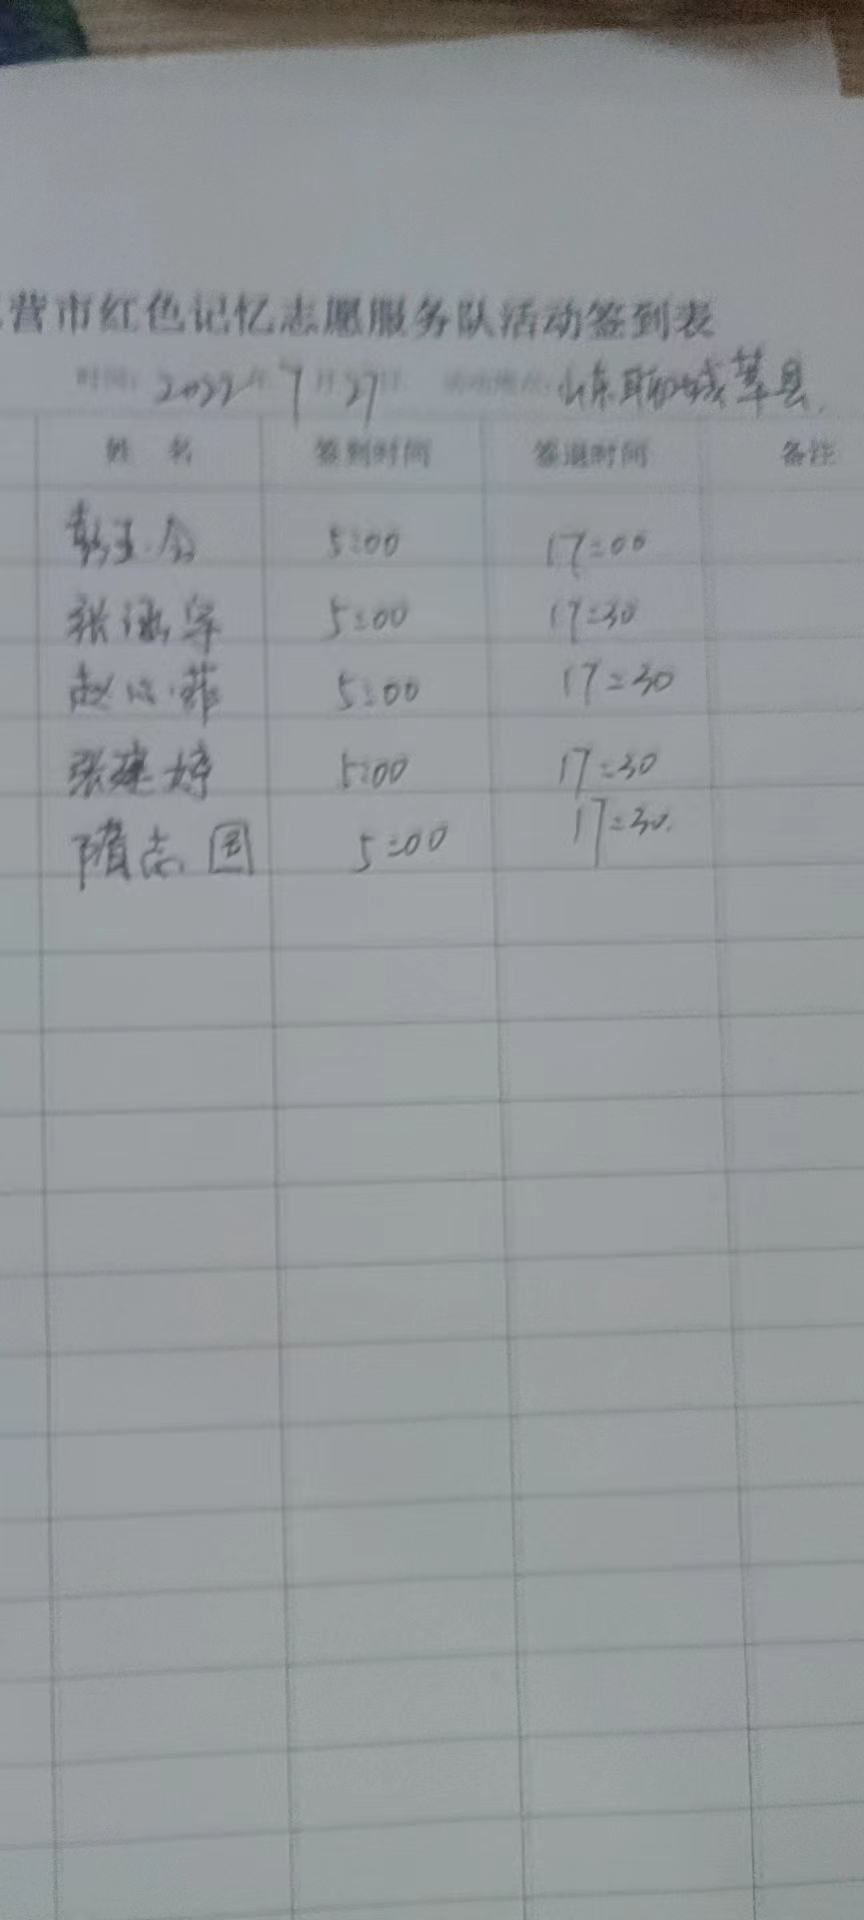 营市红色记忆志愿服务队活动签到表
时间: 2022年7月27日 活动地点: 山东聊城莘县
姓 名 签到时间 签退时间 备注
5:00 17:00
张 5:00 17:30
赵 5:00 17:30
张建婷 5:00 17:30
隋志国 5:00 17:30